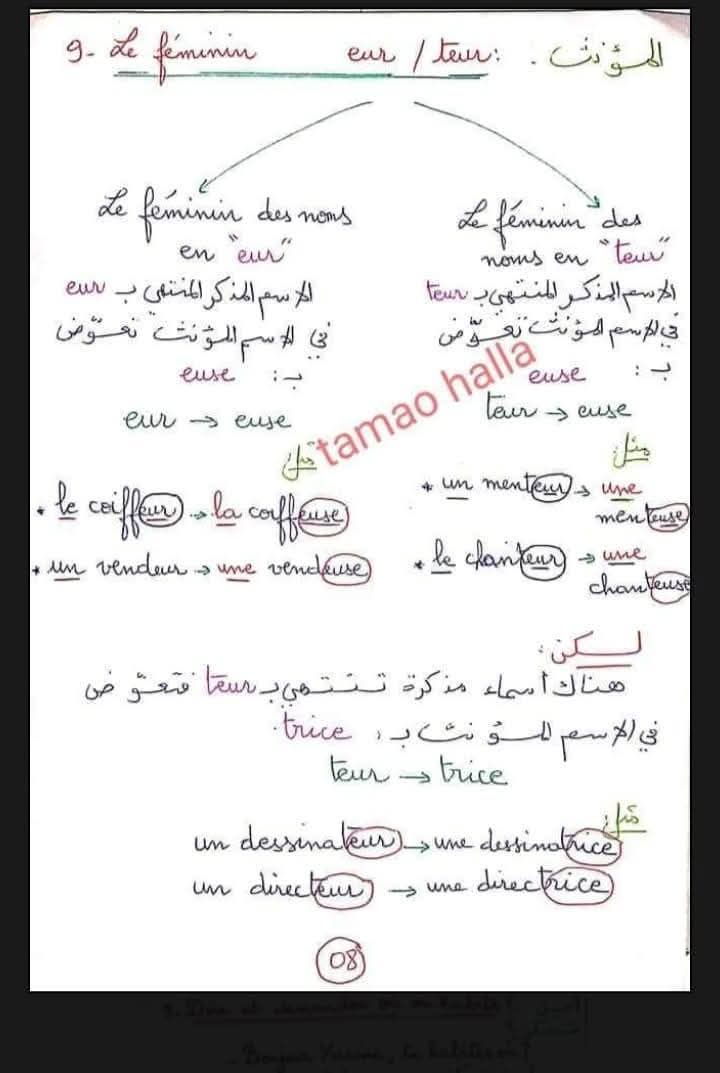 9- Le féminin eur / teur: المؤنث.
Le féminin des noms
en "eur"
الاسم المذكر المنتهي بـ eur
في الاسم المؤنث نعوّض
بـ: euse
eur → euse
مثل:
* le coiffeur → la coiffeuse
* un vendeur → une vendeuse
Le féminin des
noms en "teur"
الاسم المذكر المنتهي بـ teur
في الاسم المؤنث نعوّض
بـ: euse
teur → euse
مثل:
* un menteur → une
menteuse
* le chanteur → une
chanteuse
tamao halla
لكن:
هناك أسماء مذكرة تنتهي بـ teur فتعوّض
في الاسم المؤنث بـ: trice.
teur → trice
مثل:
un dessinateur → une dessinatrice
un directeur → une directrice
08